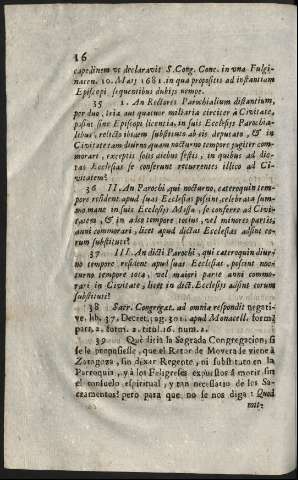 16
capedinem ve declaravit S. Cong. Conc. in vna Fulgi-
naten. 10. Maij 1681. in qua propositis ad instantiam
Episcopi sequentibus dubijs nempe.
35 I. An Rectores Parochialium distantium,
per duo, tria aut quatuor milliaria circiter à Civitate,
possint sine Episcopi licentia, in suis Ecclesijs Parochia-
libus, relicto ibidem substituto ab eis deputato, & in
Civitate tam diurno quam nocturno tempore jugiter com-
morari, exceptis solis diebus festis, in quibus ad dic-
tas Ecclesias se conferunt recurrentes illico ad Ci-
vitatem?
36 II. An Parochi qui nocturno, cateroquin tem-
pore resident apud suas Ecclesias possint, celebrata sum-
mo mane in suis Ecclesijs Missa, se conferre ad Civi-
tatem, & in alio tempore totius, vel minoris partis,
anni commorari, licet apud dictas Ecclesias adsint eo-
rum substituti?
37 III. An dicti Parochi, qui cateroquin diur-
no tempore resident apud suas Ecclesias, possint noc-
turno tempore toto, vel maiori parte anni commo-
rari in Civitate, licet in dict. Ecclesijs adsint eorum
substituti?
38 Sacr. Congregat. ad omnia respondit negati-
ve, lib. 37. Decret. pag. 301. apud Monacell. form.
part. 2. tom. 2. titul. 16. num. 2.
39 Què diria la Sagrada Congregacion, si
se le propusiesse, que el Retor de Movera de viene à
Zaragoza, sin dexar Regente, ni substituto en la
Parroquia, y à los Feligreses expuestos à morir sin
el consuelo espiritual, y tan necessario de los Sa-
cramentos? pero para que no se nos diga: Quod
mit-